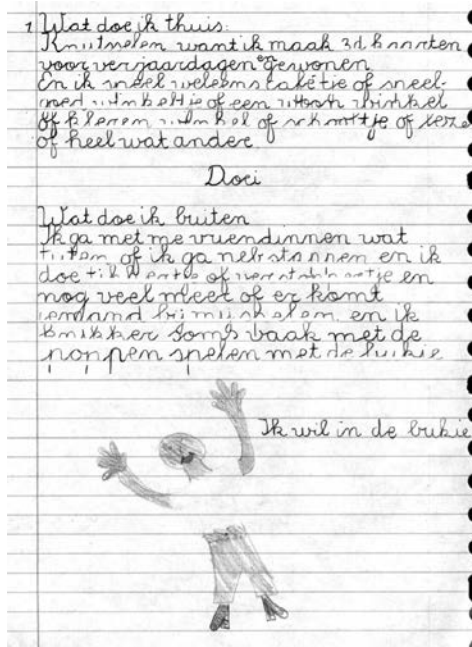 1 Wat doe ik thuis:
Knutselen want ik maak 3d kaarten
voor verjaardagen en gewonen
En ik speel weleens cafétje of
winkeltje of een winkel
of kleren winkel of schooltje of
of heel wat ander
Doei
Wat doe ik buiten
Ik ga met me vriendinnen wat
of ik ga en ik
doe tikkertje of verstoppertje en
nog veel meer of er komt
iemand bij mij spelen en ik
knikker soms vaak met de
poppen spelen met de
Ik wil in de bukie